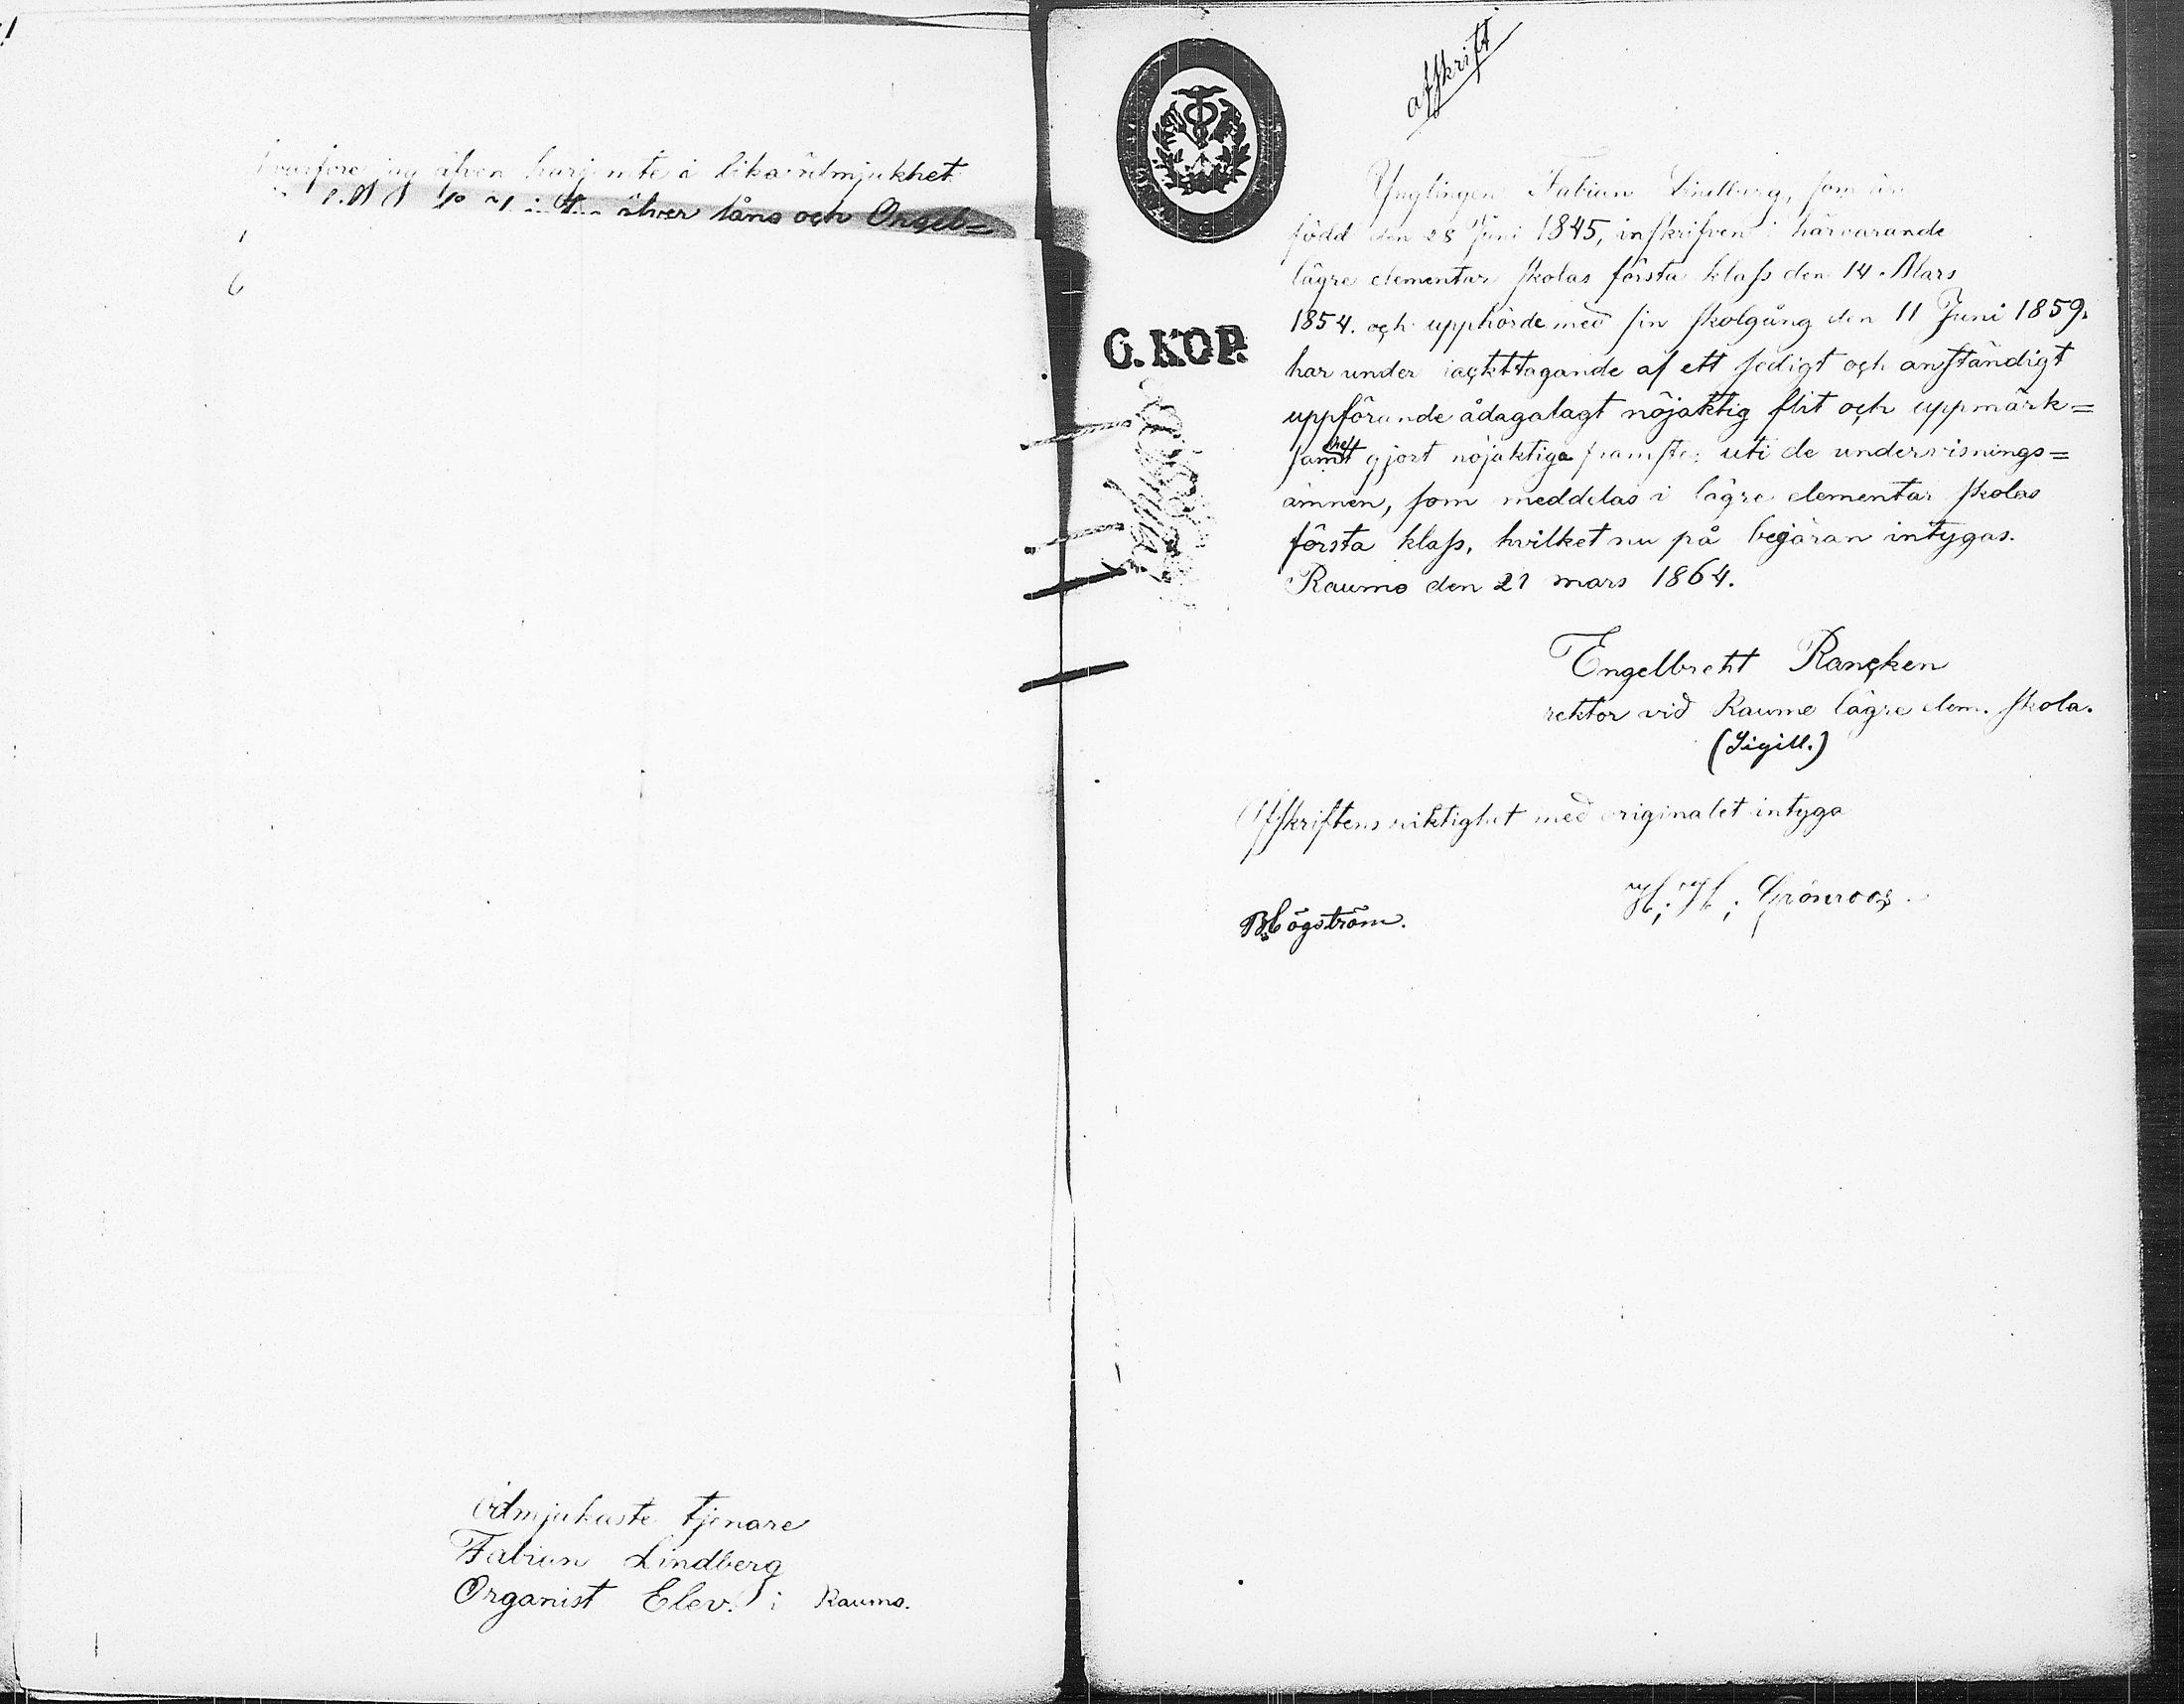 hvarföre jag äfven härjemte i lika ödmjukhet
öfver låne och Orgel=
6
ödmjukaste tjenare
Fabian Lindberg
Organist Elev. i Raumo.
afskrift
Ynglingen Fabian Lindberg, som är
född den 28 Juni 1845, inskrifven i härvarande
lägre elementar skolas första klass den 14 Mars
1854. och upphörde med sin skolgång den 11 Juni 1859.
har under iackttagande af ett sedigt och anständigt
uppförande ådagalagt nöjaktig flit och uppmärk=
samhet gjort nöjaktiga framsteg uti de undervisnings=
ämnen, som meddelas i lägre elementar skolas
första klass, hvilket nu på begäran intygas.
Raumo den 21 mars 1864.
Engelbreht Rancken
rektor vid Raumo lägre elem. skola.
(Sigill.)
Afskriftens riktighet med originalet intyga
H; H; Grönroos.
B. Högström.
C. KOP.